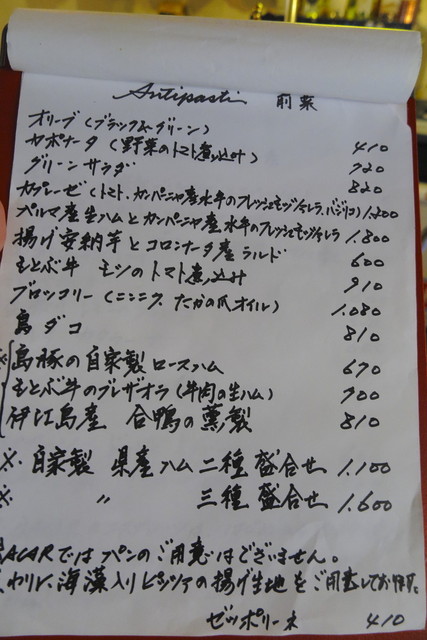 Antipasti 前菜
オリーブ(ブラック&グリーン) 410
カポナータ (野菜のトマト煮込み) 720
グリーンサラダ 820
カプレーゼ(トマト、カンパーニャ産水牛のフレッシュモッツァレラ、バジリコ) 1,200
パルマ産生ハムとカンパーニャ産水牛のフレッシュモッツァレラ 1,800
揚げ安納芋とコロンナータ産ラルド 600
もとぶ牛 モツのトマト煮込み 910
ブロッコリー (ニンニク、たかの爪、オイル) 1,080
島ダコ 810
※ 島豚の自家製ロースハム 670
もとぶ牛のブレザオラ (牛肉の生ハム) 700
伊江島産 合鴨の薫製 810
※ 自家製 県産ハム 二種 盛合せ 1,100
※ 〃 三種 盛合せ 1,600
BACARではパンのご用意はございません。
かわりに、海藻入りピッツァの揚げ生地をご用意しております。
ゼッポリーネ 410